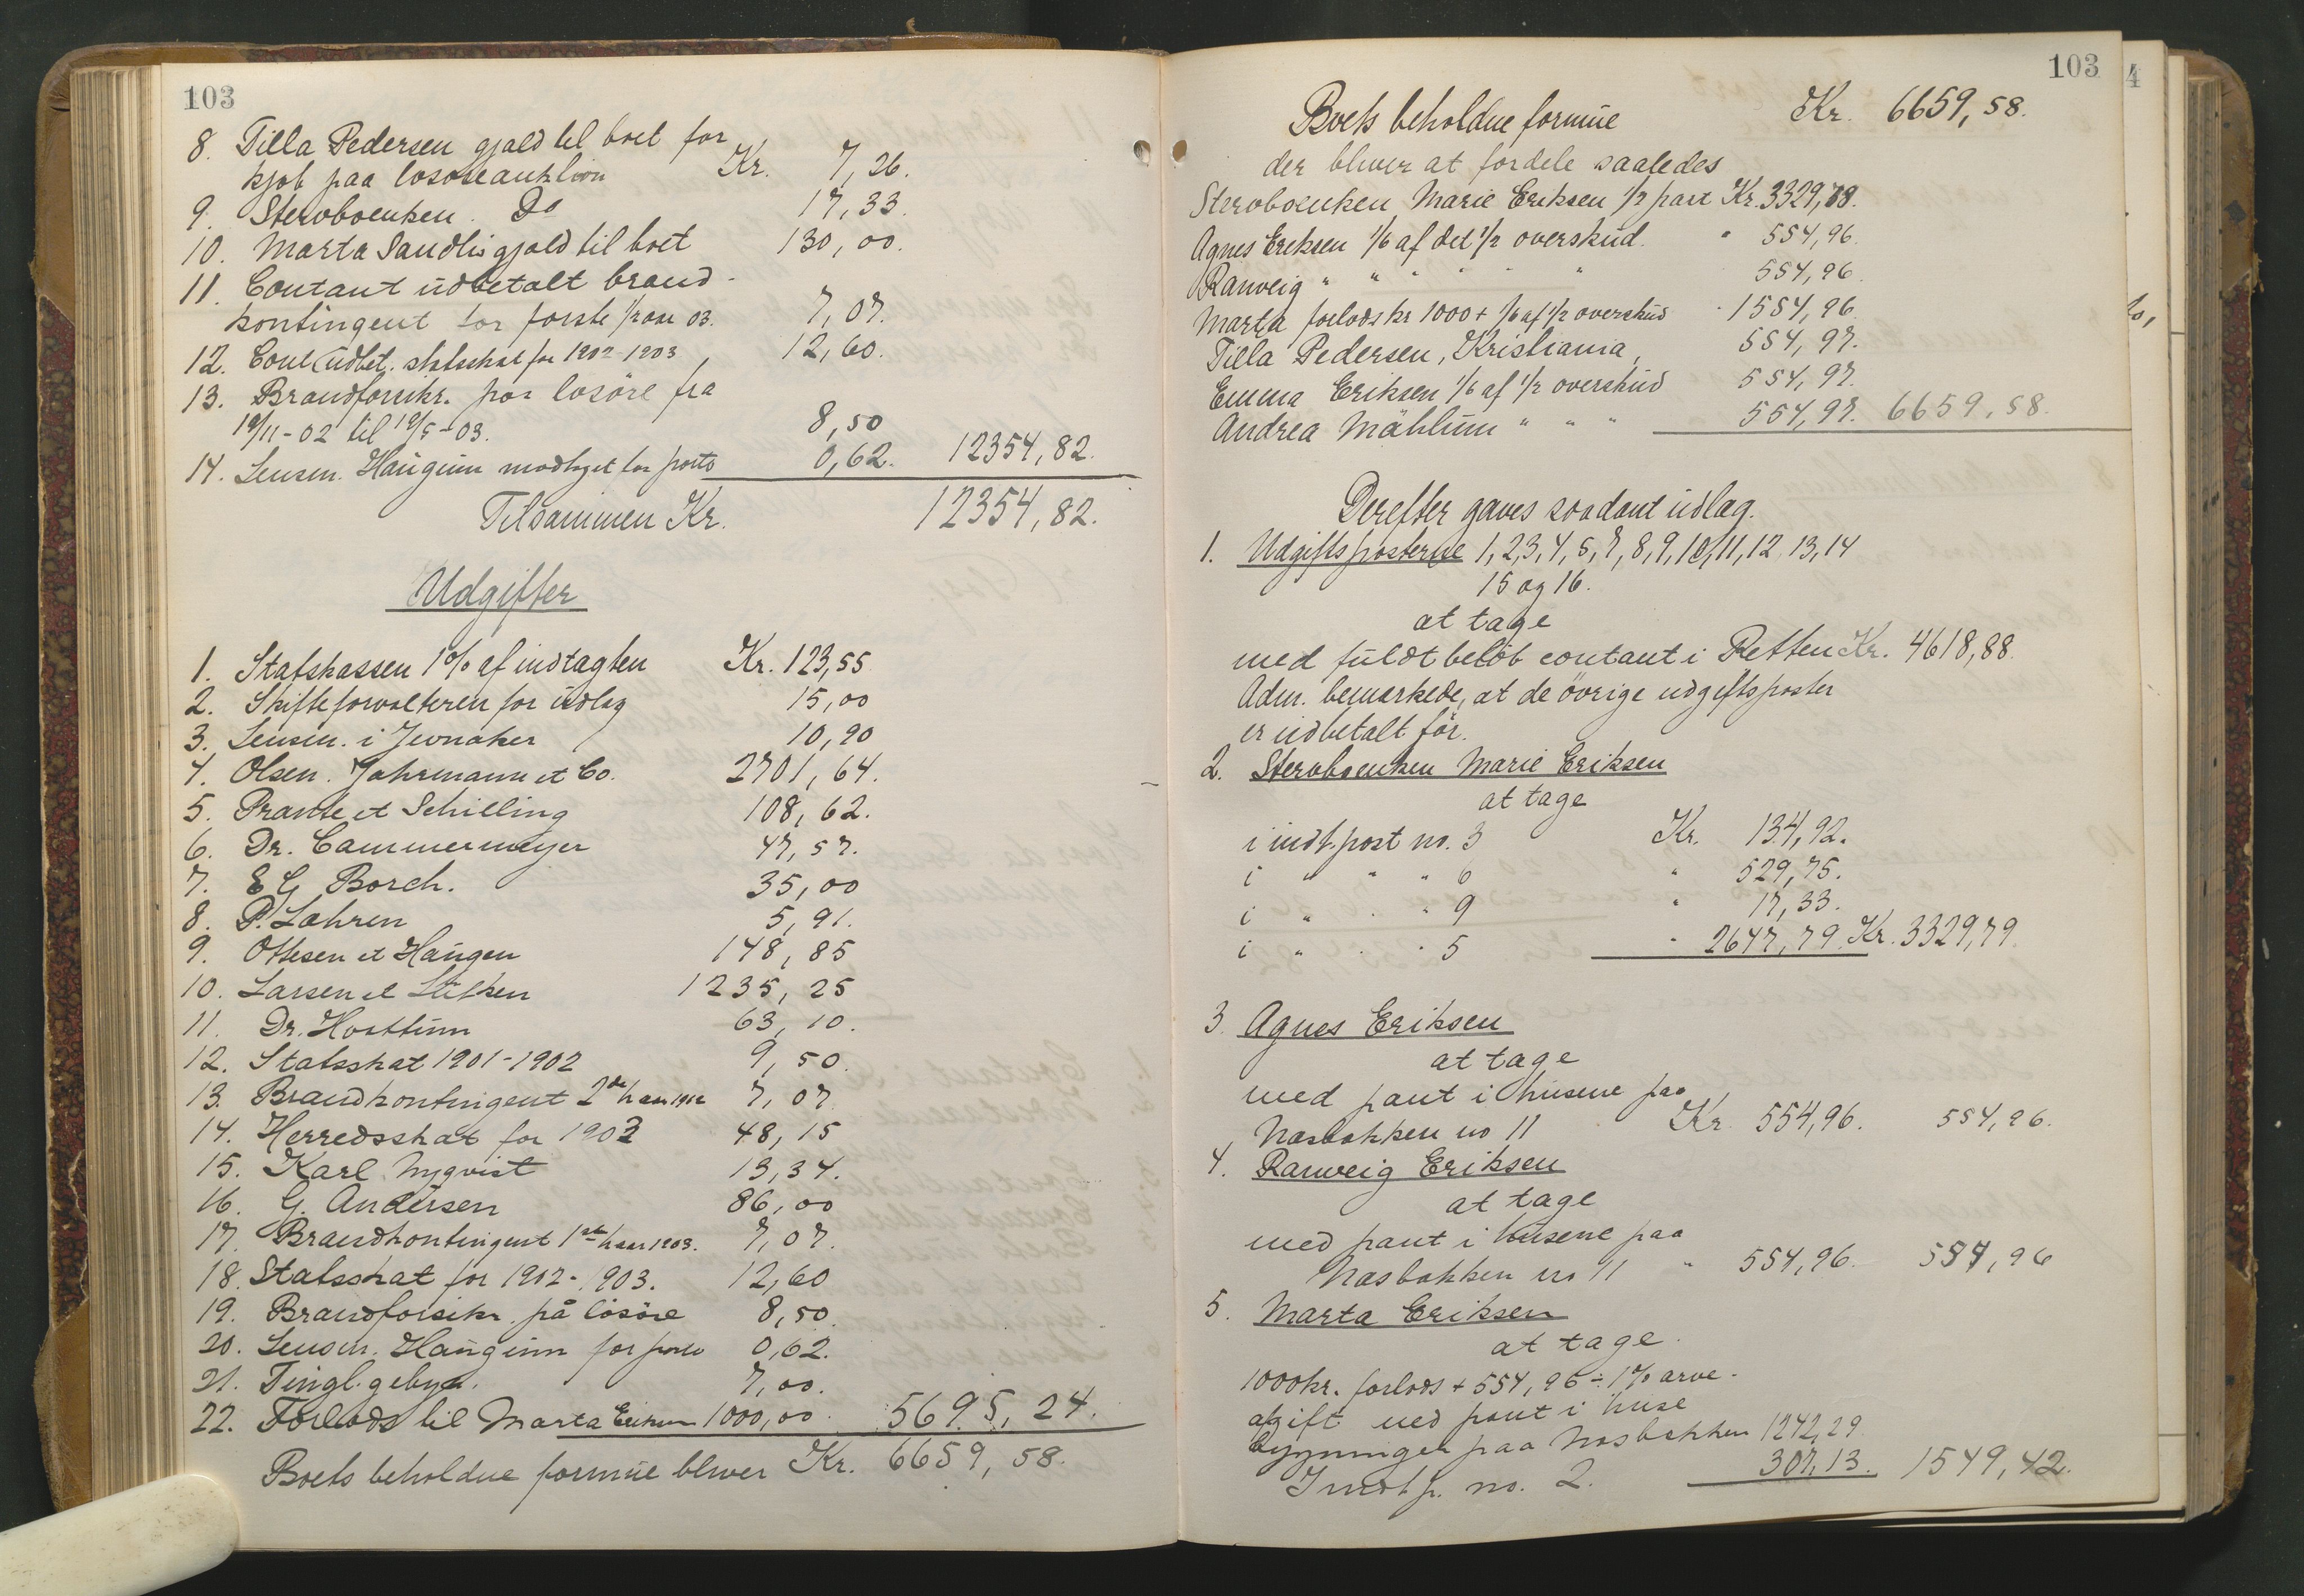 103
8. Tilla Pedersen gjald til boet for
kjøb paa løsøreauktion Kr. 7,26.
9. Stervboenken. Do 17,33.
10. Marta Sandlis gjald til boet 130,00.
11. Contant udbetalt brand-
kontingent for første 1/2 aar 03. 7,07.
12. Cont. udbet. statsskat for 1902-1903, 12,60.
13. Brandforsikr. paa løsøre fra
12/11-02 til 12/5-03. 8,50
14. Lensm. Haugun modtaget for porto 0,62. 12354,82.
Tilsammen Kr. 12354,82.
Udgifter
1. Statskassen 1% af indtægten Kr. 123,55
2. Skifteforvalteren for udlæg 15,00
3. Lensm. i Jevnaker 10,90
4. Olsen. Jahrmann et Co. 2701,64.
5. Prante et Schilling 108,62.
6. Dr. Cammermeyer 47,57.
7. E G Borch. 35,00
8. P. Lahren 5,91.
9. Ottesen et Haugen 148,85
10. Larsen et Lütken 1235,25
11. Dr. Hoattum 63,10.
12. Statsskat 1901-1902 9,50.
13. Brandkontingent 2de h aar 1902 7,07
14. Herredsskat for 1902 48,15
15. Karl Nyqvist 13,34.
16. G. Andersen 86,00
17. Brandkontingent 1ste h aar 1903. 7,07.
18. Statsskat for 1902-1903. 12,60
19. Brandforsikr. på løsöre 8,50.
20. Lensm. Haugun for porto 0,62.
21. Tingl. gebyr. 7,00.
22. Forlods til Marta Eriksen 1000,00. 5695,24.
Boets beholdne formue bliver Kr. 6659,58.
103
4
Boets beholdne formue Kr. 6659,58.
der bliver at fordele saaledes
Stervboenken Marie Eriksen 1/2 part Kr. 3329,78.
Agnes Eriksen 1/6 af det 1/2 overskud. " 554,96.
Ranveig " " " " " " 554,96.
Marta forlods kr 1000 + 1/6 af 1/2 overskud " 1554,96.
Tilla Pedersen, Kristiania, 554,97.
Emma Eriksen 1/6 af 1/2 overskud 554,97.
Andrea Mählum " " " 554,97. 6659,58.
Derefter gaves saadant udlæg.
1. Udgiftsposterne 1,2,3,4,5,7,8,9,10,11,12,13,14
15 og 16.
at tage
med fuldt belöb contant i Retten Kr. 4618,88.
Adm. bemærkede, at de övrige udgiftsposter
er udbetalt för.
2. Stervboenken Marie Eriksen
at tage
i indt. post no. 3 Kr. 134,92.
i " " " 6 " 529,75.
i " " " 9 " 17,33.
i " " " 5 " 2647,79 Kr. 3329,79.
3. Agnes Eriksen
at tage
med pant i husene paa
Næsbakken no 11 Kr. 554,96. 554,96.
4. Ranveig Eriksen
at tage
med pant i husene paa
Næsbakken no 11 " 554,96. 554,96
5. Marta Eriksen
at tage.
1000 kr. forlods + 554,96 ÷ 1% arve-
afgift med pant i huse
bygningen paa Næsbakken 1242,29.
Indt p. no. 2. 307,13. 1549,42.